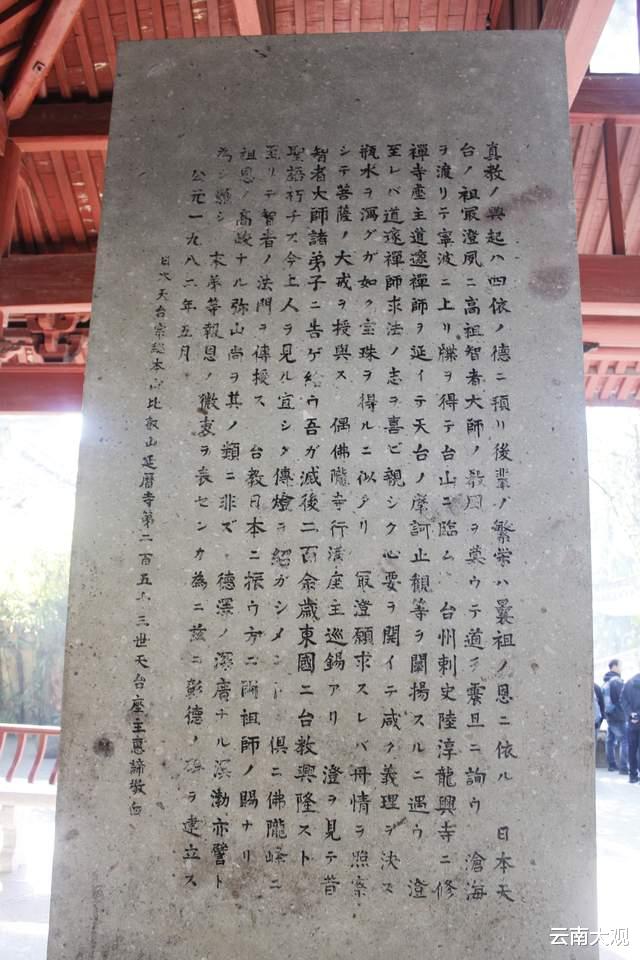 真教ノ興起ハ四依ノ德ニ預リ後輩ノ繁栄ハ曩祖ノ恩ニ依ル 日本天
台ノ祖最澄夙ニ高祖智者大師ノ敎風ヲ莫ウテ道ヲ震旦ニ詢ウ 滄海
ヲ渡リテ寧波ニ上リ牒ヲ得テ台山ニ臨ム 台州刺史陸淳龍興寺ニ修
禪寺座主道邃禪師ヲ延イテ天台ノ摩訶止観等ヲ闡揚スルニ遇ウ 澄
至レバ道邃禪師求法ノ志ヲ喜ビ親シク心要ヲ開イテ咸ク義理ヲ決ス
瓶水ヲ瀉グガ如ク宝珠ヲ得ルニ似タリ 最澄願求スレバ冊情ヲ照察
シテ菩薩ノ大戒ヲ授與ス 偶佛隴寺行満座主巡錫アリ 澄ヲ見テ昔
智者大師諸弟子ニ告ゲ給ウ吾ガ滅後二百余歳東國ニ台教興隆スト
聖語朽チズ今上人ヲ見ル宜シク傳燈ヲ紹ガシメント 倶ニ佛隴峰ニ
至リテ智者ノ法門ヲ傳授ス 台教日本ニ振ウ方ニ両祖師ノ賜ナリ
祖恩ノ高峻ナル弥山尚ヲ其ノ類ニ非ズ 德澤ノ深廣ナル溟渤亦譬ト
為シ難シ 末弟等報恩ノ微衷ヲ表センカ為ニ玆ニ彰德ノ碑ヲ建立ス
公元一九八二年五月
日本天台宗総本山比叡山延暦寺第二百五十三世天台座主惠諦敬白
云南大观